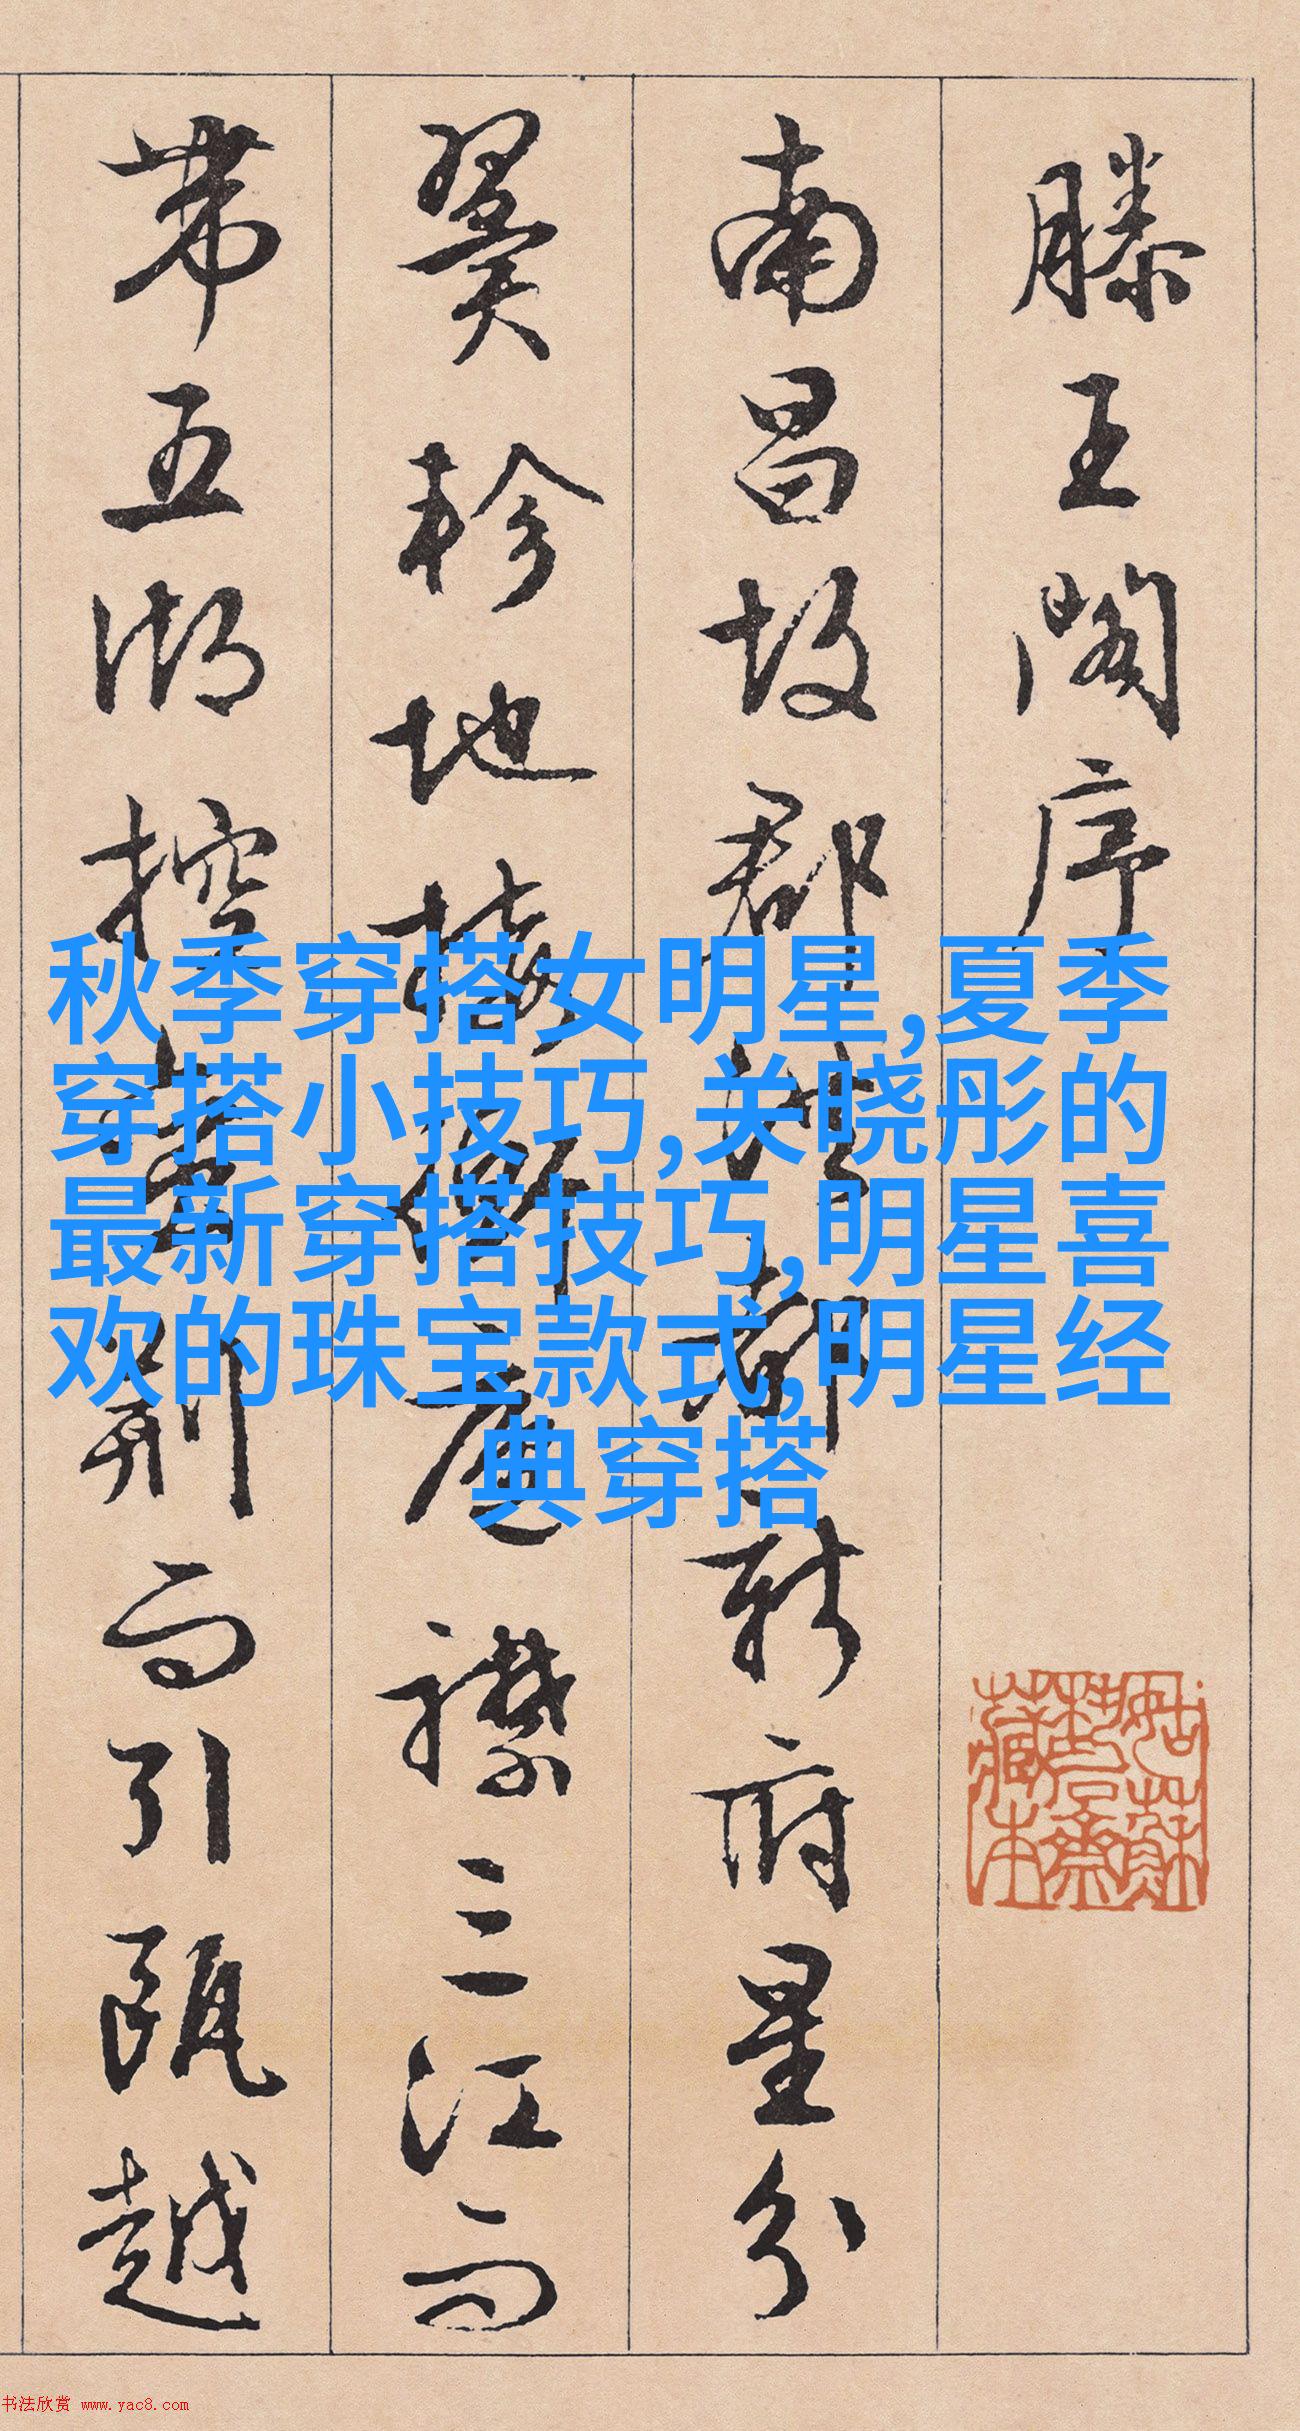 滕王閣序
南昌故郡洪都新府星分
翼軫地接衡廬襟三江而
帶五湖控蠻荊而引甌越
秋季穿搭女明星,夏季
穿搭小技巧,关晓彤的
最新穿搭技巧,明星喜
欢的珠宝款式,明星经
典穿搭
书法欣赏 www.yac8.com